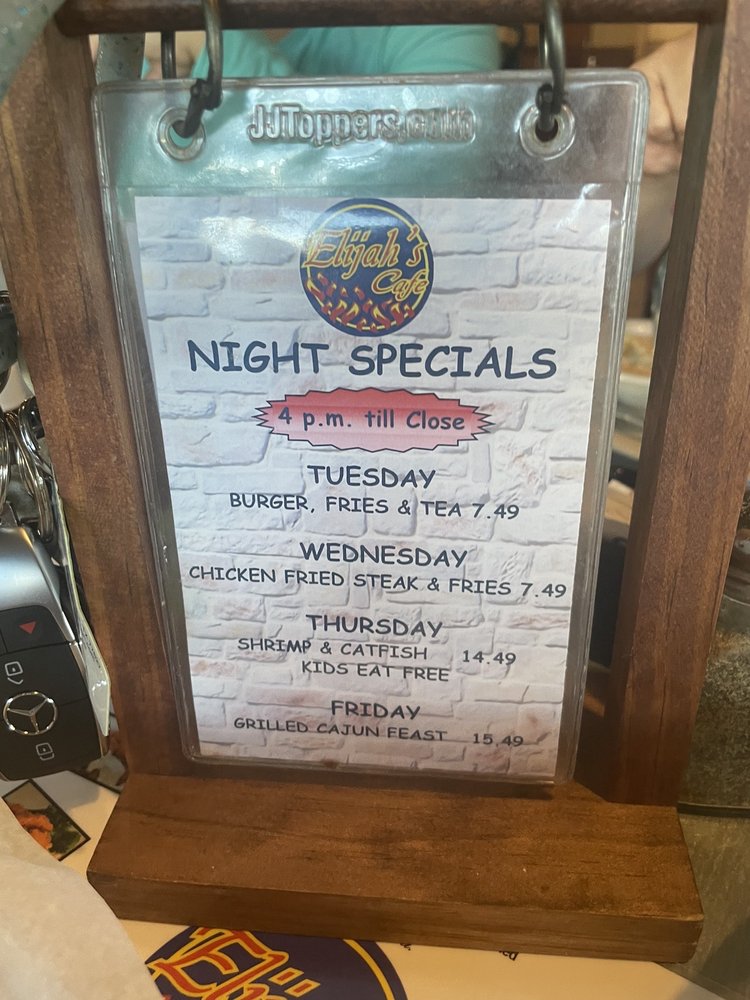 JJToppers.com
Elijah's
Cafe
NIGHT SPECIALS
4 p.m. till Close
TUESDAY
BURGER, FRIES & TEA 7.49
WEDNESDAY
CHICKEN FRIED STEAK & FRIES 7.49
THURSDAY
SHRIMP & CATFISH 14.49
KIDS EAT FREE
FRIDAY
GRILLED CAJUN FEAST 15.49